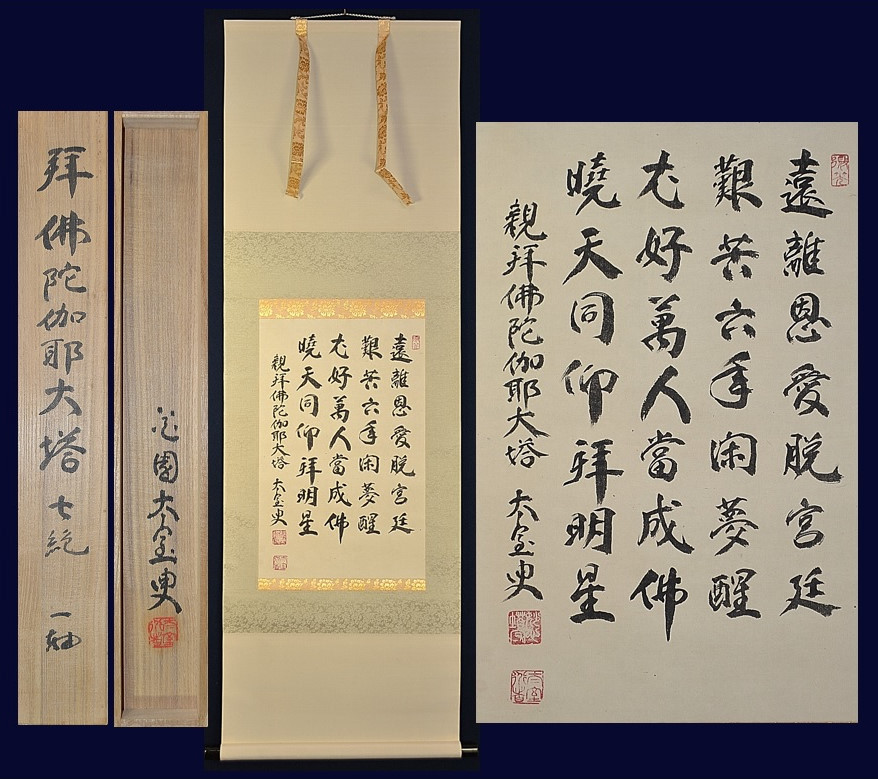 拜佛陀伽耶大塔 七絶 一軸
花園太室叟
遠離恩愛脱宮廷
艱苦六年閑夢醒
好萬人當成佛
曉天同仰拜明星
親拜佛陀伽耶大塔 太室叟
遠離恩愛脱宮廷
艱苦六年閑夢醒
好萬人當成佛
曉天同仰拜明星
親拜佛陀伽耶大塔 太室叟